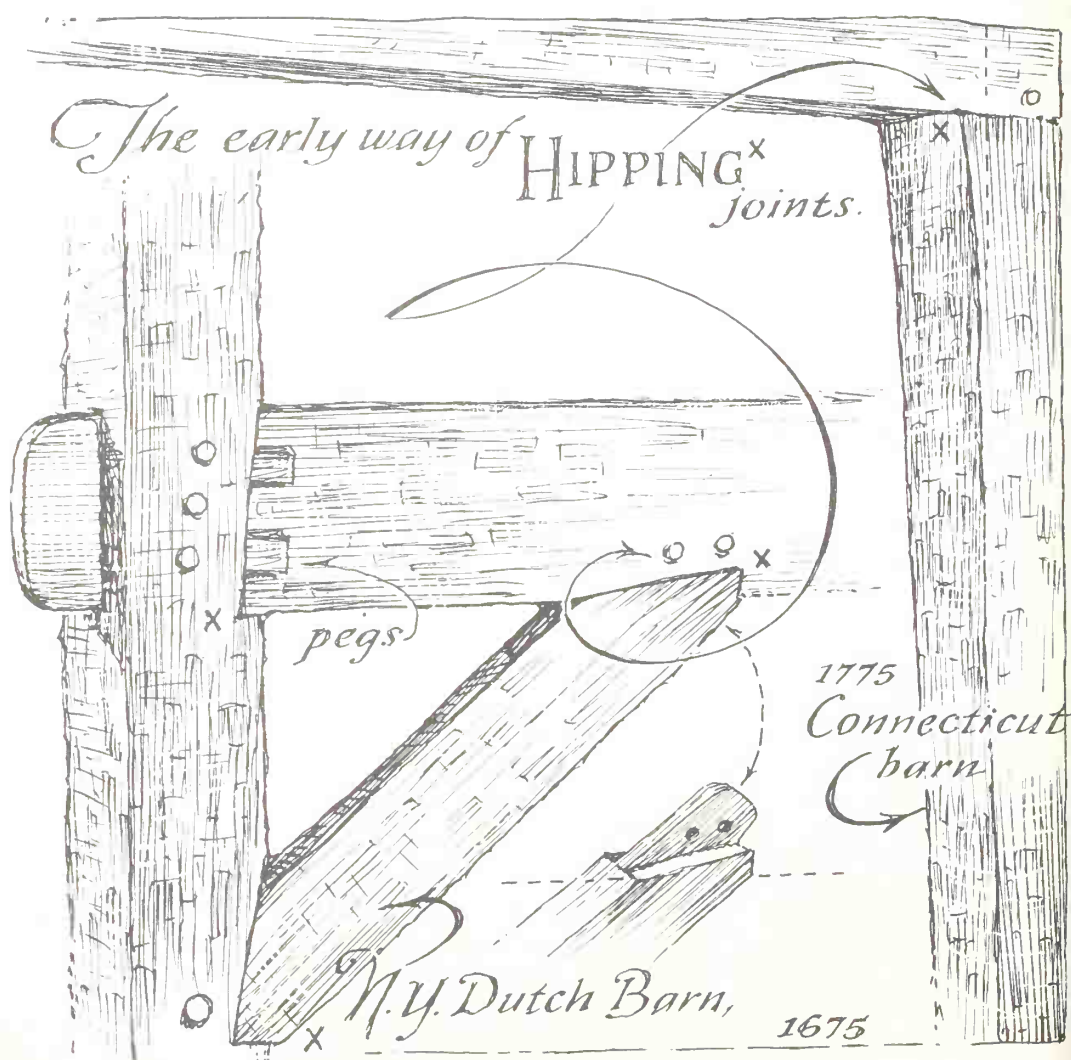 The early way of HIPPINGˣ
joints.
x
x
x
pegs
1775
Connecticut
barn
N.Y. Dutch Barn,
x
1675